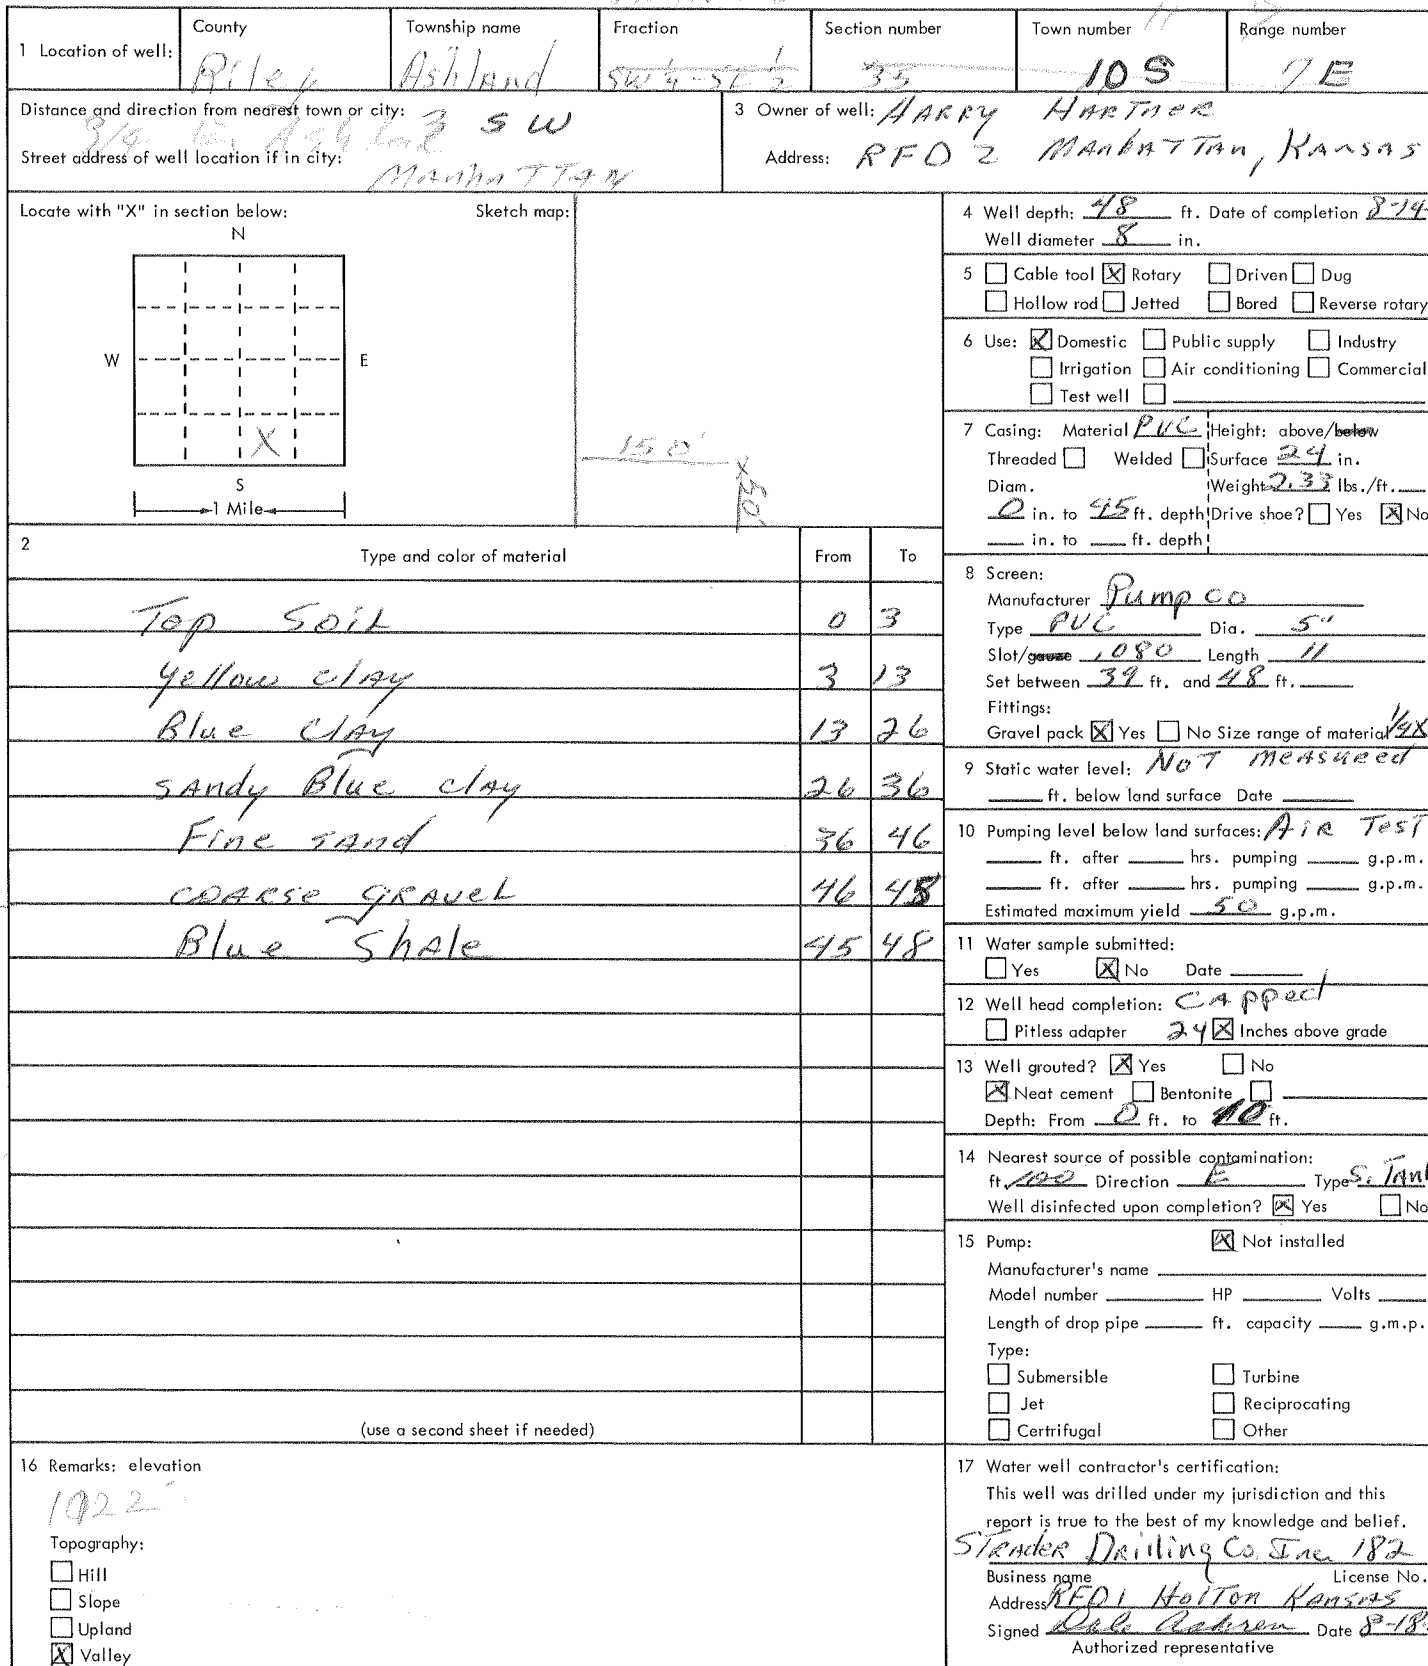 County Township name Fraction Section number Town number Range number
1 Location of well: Riley Ashland SW 1/4 - SE 1/2 35 10 S 7 E
Distance and direction from nearest town or city: 3 SW
Street address of well location if in city: Manhattan
3 Owner of well: Harry Hartner
Address: RFD 2 Manhattan, Kansas
Locate with "X" in section below: Sketch map:
N
W E
X
S
1 Mile
150'
x 50'
2 Type and color of material From To
Top Soil 0 3
Yellow clay 3 13
Blue Clay 13 26
Sandy Blue clay 26 36
Fine sand 36 46
Coarse gravel 46 45
Blue Shale 45 48
(use a second sheet if needed)
16 Remarks: elevation
1022
Topography:
Hill
Slope
Upland
X Valley
4 Well depth: 48 ft. Date of completion 8-14-
Well diameter 8 in.
5 Cable tool X Rotary Driven Dug
Hollow rod Jetted Bored Reverse rotary
6 Use: X Domestic Public supply Industry
Irrigation Air conditioning Commercial
Test well
7 Casing: Material PVC Height: above/below
Threaded Welded Surface 24 in.
Diam. Weight 2.33 lbs./ft.
0 in. to 45 ft. depth Drive shoe? Yes X No
in. to ft. depth
8 Screen:
Manufacturer Pump Co
Type PVC Dia. 5"
Slot/gauze .080 Length 11
Set between 39 ft. and 48 ft.
Fittings:
Gravel pack X Yes No Size range of material 1/4X
9 Static water level: Not measured
ft. below land surface Date
10 Pumping level below land surfaces: Air Test
ft. after hrs. pumping g.p.m.
ft. after hrs. pumping g.p.m.
Estimated maximum yield 50 g.p.m.
11 Water sample submitted:
Yes X No Date
12 Well head completion: Capped
Pitless adapter 24 X Inches above grade
13 Well grouted? X Yes No
X Neat cement Bentonite
Depth: From 0 ft. to 10 ft.
14 Nearest source of possible contamination:
ft. 100 Direction E Type S. Tank
Well disinfected upon completion? X Yes No
15 Pump: X Not installed
Manufacturer's name
Model number HP Volts
Length of drop pipe ft. capacity g.m.p.
Type:
Submersible Turbine
Jet Reciprocating
Certrifugal Other
17 Water well contractor's certification:
This well was drilled under my jurisdiction and this
report is true to the best of my knowledge and belief.
Strader Drilling Co. Inc. 182
Business name License No.
Address RFD 1 Holton Kansas
Signed Dale Date 8-18-
Authorized representative